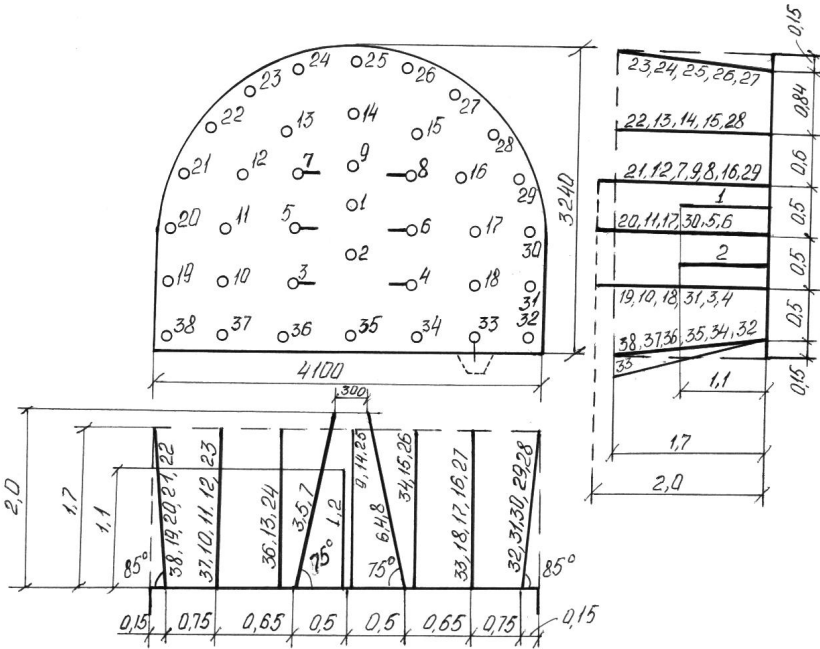 24 25 26
23 27
22 13 14 15 28
21 12 7 9 8 16 29
1
20 11 5 6 17 30
2
19 10 3 4 18 31
38 37 36 35 34 33 32
4100
3240
23, 24, 25, 26, 27
22, 13, 14, 15, 28
21, 12, 7, 9, 8, 16, 29
1
20, 11, 17, 30, 5, 6
2
19, 10, 18, 31, 3, 4
38, 37, 36, 35, 34, 32
33
0,15
0,84
0,6
0,5
0,5
0,5
0,15
1,1
1,7
2,0
300
2,0
1,7
1,1
85°
38, 19, 20, 21, 22
37, 10, 11, 12, 23
36, 13, 24
3, 5, 7
75°
1, 2
9, 14, 25
6, 4, 8
75°
34, 15, 26
33, 18, 17, 16, 27
32, 31, 30, 29, 28
85°
0,15 0,75 0,65 0,5 0,5 0,65 0,75 0,15